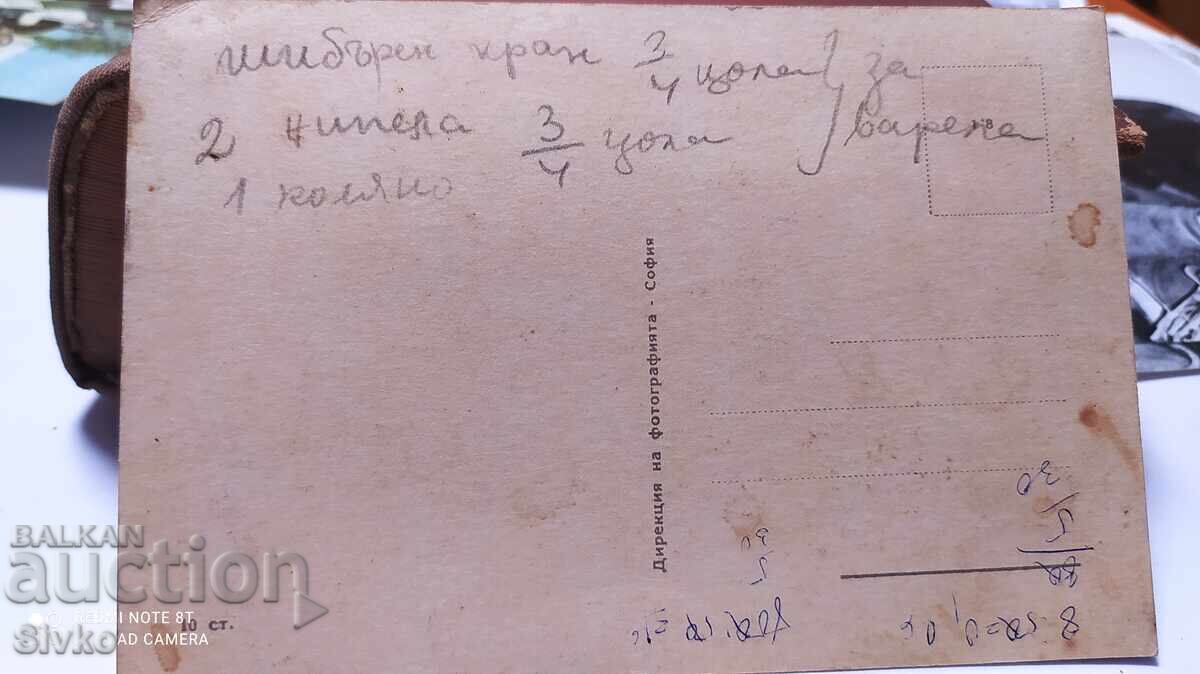 шибърен кран 3/4 цола } за
2 нипела 3/4 цола } варена
1 коляно
Дирекция на фотографията - София
30
5
30
5
10 ст.
BALKAN
auction
REDMI NOTE 8T
Sivko
AD CAMERA